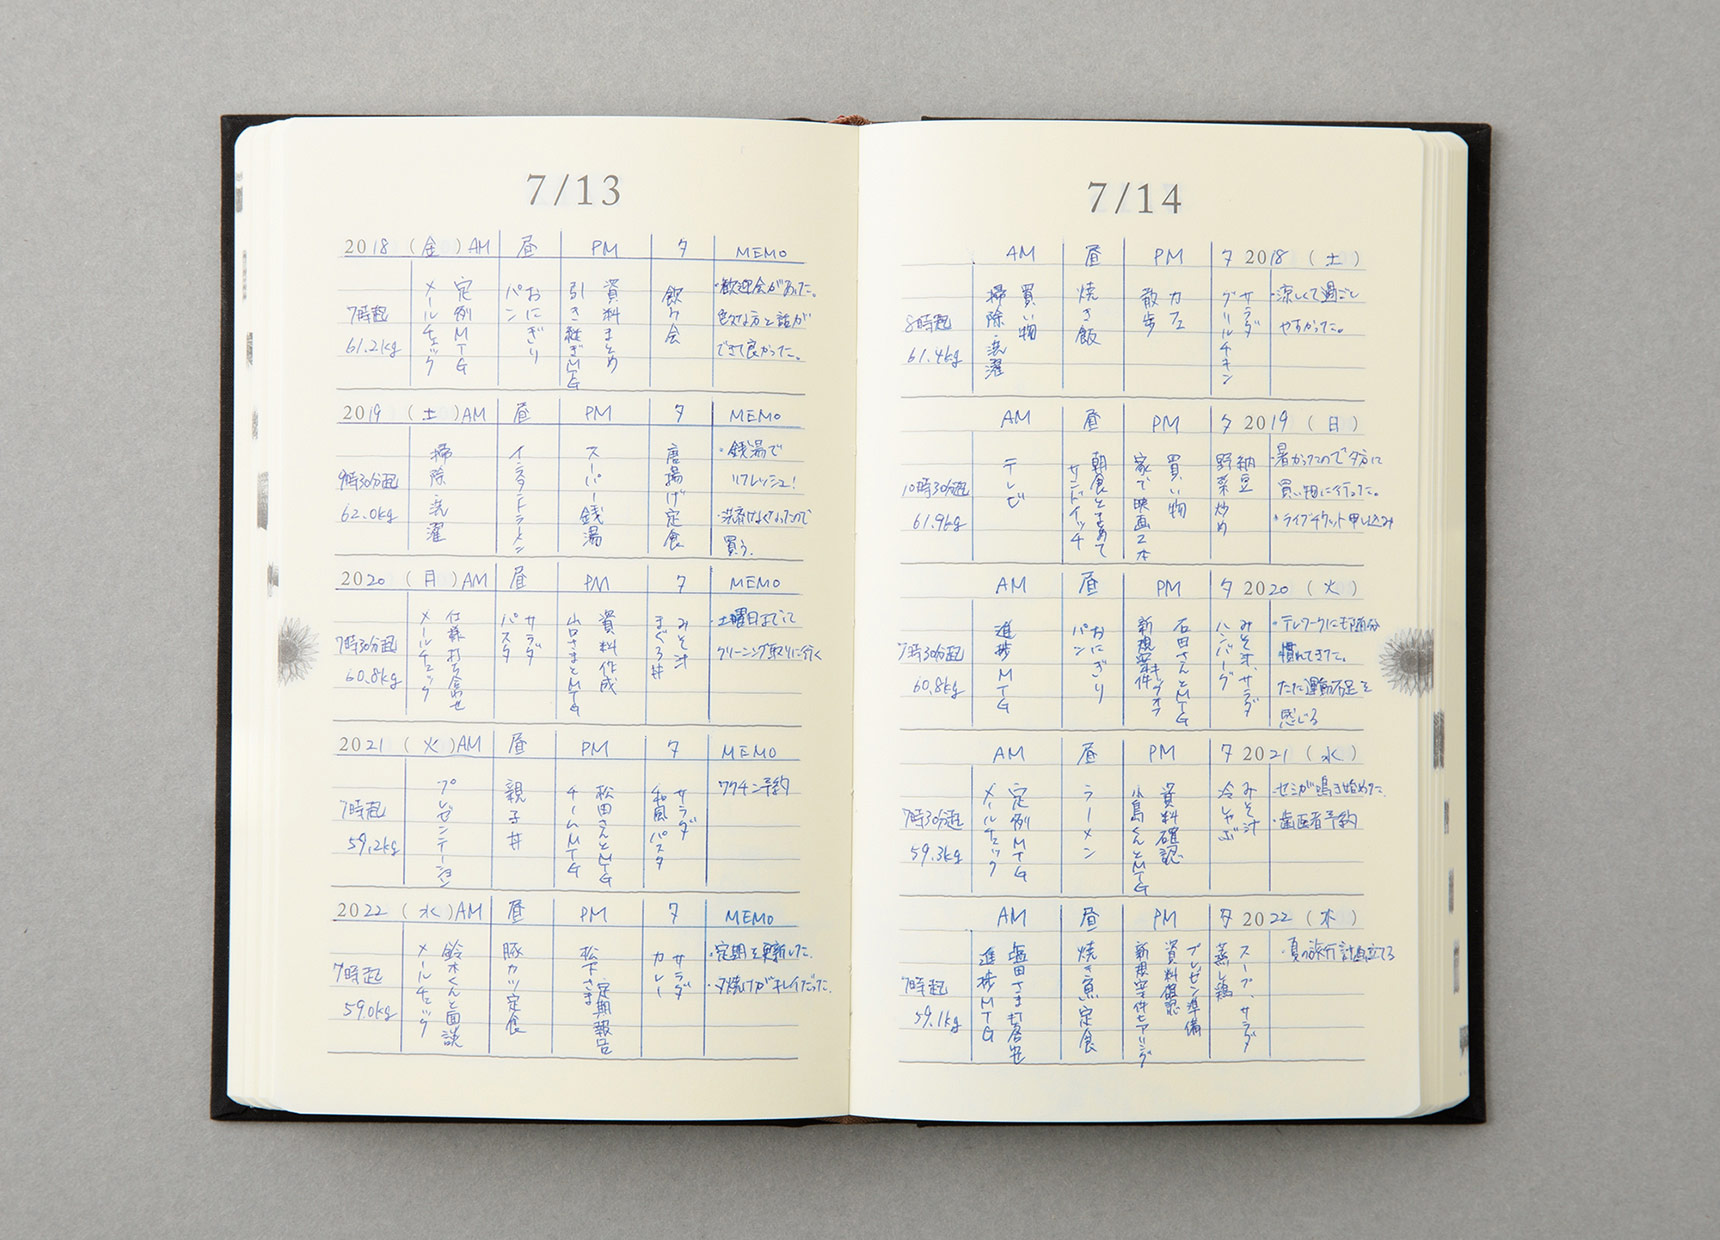 7/13
2018 (金) AM 昼 PM 夕 MEMO
7時起
61.2kg
定例MTG
メールチェック
おにぎり
パン
資料まとめ
引き継ぎMTG
飲み会
・歓迎会があった。
色々な方と話が
できて良かった。
2019 (土) AM 昼 PM 夕 MEMO
9時30分起
62.0kg
掃除、洗濯
インスタントラーメン
スーパー銭湯
唐揚げ定食
・銭湯で
リフレッシュ!
・洗剤なくなったので
買う。
2020 (月) AM 昼 PM 夕 MEMO
7時30分起
60.8kg
仕様打ち合わせ
メールチェック
サラダ
パスタ
資料作成
山口さまとMTG
みそ汁
まぐろ丼
・土曜日までに
クリーニング取りに行く
2021 (火) AM 昼 PM 夕 MEMO
7時起
59.2kg
プレゼンテーション
親子丼
松田さんとMTG
チームMTG
サラダ
和風パスタ
ワクチン予約
2022 (水) AM 昼 PM 夕 MEMO
7時起
59.0kg
鈴木くんと面談
メールチェック
豚カツ定食
松下さま 定期報告
サラダ
カレー
・定期を更新した。
・夕焼けがキレイだった。
7/14
AM 昼 PM 夕 2018 (土)
8時起
61.4kg
買い物
掃除、洗濯
焼き飯
カフェ
散歩
サラダ
グリルチキン
・涼しくて過ごし
やすかった。
AM 昼 PM 夕 2019 (日)
10時30分起
61.9kg
テレビ
朝食とまとめて
サンドイッチ
買い物
家で映画2本
納豆
野菜炒め
・暑かったので夕方に
買い物に行った。
・ライブチケット申し込み
AM 昼 PM 夕 2020 (火)
7時30分起
60.8kg
進捗MTG
おにぎり
パン
石田さんとMTG
新規案件キックオフ
みそ汁、サラダ
ハンバーグ
・テレワークにも随分
慣れてきた。
ただ運動不足を
感じる
AM 昼 PM 夕 2021 (水)
7時30分起
59.3kg
定例MTG
メールチェック
ラーメン
資料確認
小島くんとMTG
みそ汁
冷しゃぶ
・セミが鳴き始めた
・歯医者予約
AM 昼 PM 夕 2022 (木)
7時起
59.1kg
塩田さま打合せ
進捗MTG
焼き魚定食
プレゼン準備
資料確認
新規案件ヒアリング
スープ、サラダ
蒸し鶏
・夏の旅行計画立てる